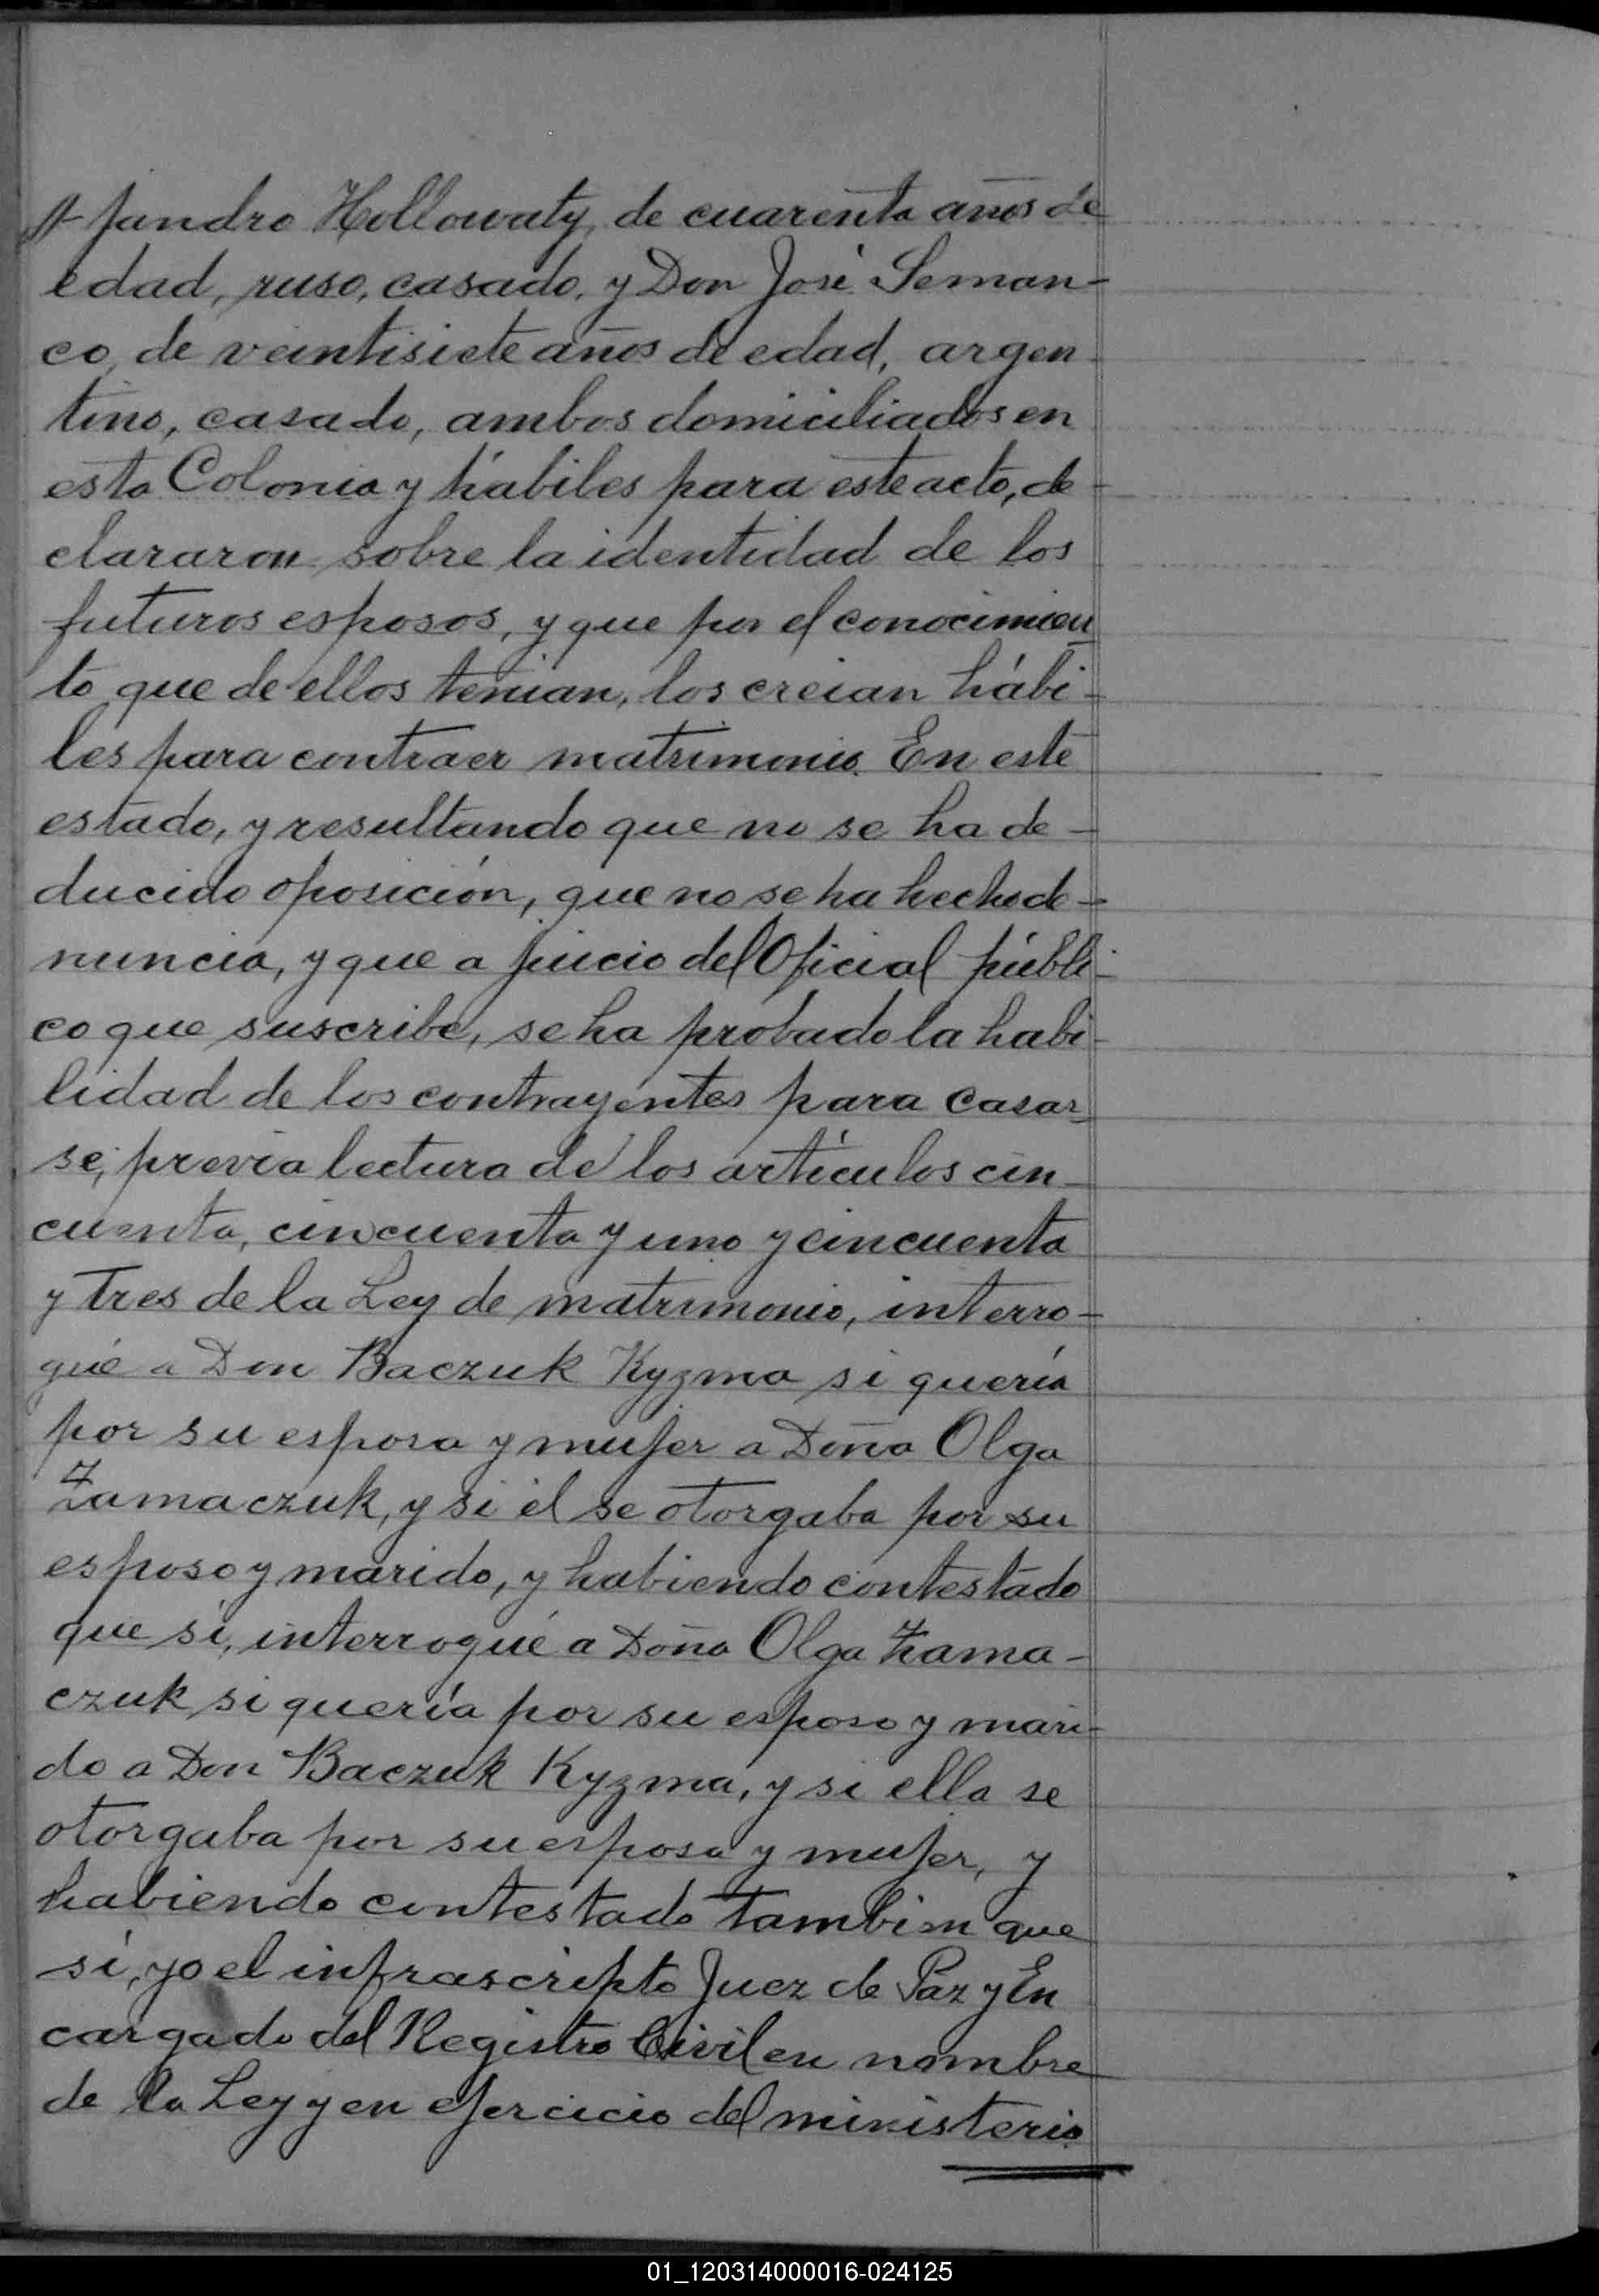 jandro Hollowaty, de cuarenta años de
edad, ruso, casado, y Don José Seman-
co, de veintisiete años de edad, argen-
tino, casado, ambos domiciliados en
esta Colonia y hábiles para este acto, de-
clararon sobre la identidad de los
futuros esposos, y que por el conocimien
to que de ellos tenian, los creian hábi-
les para contraer matrimonio. En este
estado, y resultando que no se ha de-
ducido oposición, que no se ha hecho de-
nuncia, y que a juicio del Oficial públi-
co que suscribe, se ha probado la habi-
lidad de los contrayentes para casar
se, previa lectura de los artículos cin-
cuenta, cincuenta y uno y cincuenta
y tres de la Ley de matrimonio, interro-
gué a Don Baczuk Kyzma si quería
por su esposa y mujer a Doña Olga
Zamaczuk, y si él se otorgaba por su
esposo y marido, y habiendo contestado
que si, interrogué a Doña Olga Zama-
czuk si quería por su esposo y mari-
do a Don Baczuk Kyzma, y si ella se
otorgaba por su esposa y mujer, y
habiendo contestado tambien que
sí, yo el infrascripto Juez de Paz y En
cargado del Registro Civil en nombre
de la Ley y en ejercicio del ministerio
01_120314000016-024125